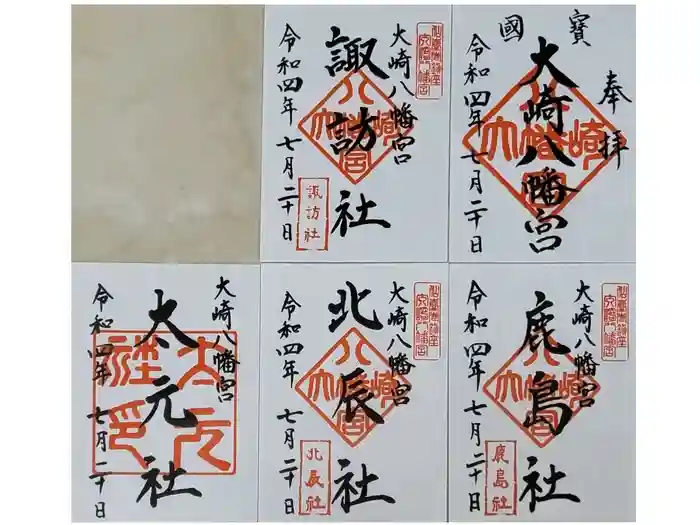 奉拝
國寶
大崎八幡宮
令和四年七月二十日
大崎八幡宮
諏訪社
諏訪社
令和四年七月二十日
大崎八幡宮
鹿島社
鹿島社
令和四年七月二十日
大崎八幡宮
北辰社
北辰社
令和四年七月二十日
大崎八幡宮
太元社
令和四年七月二十日
大崎八幡宮
大崎八幡宮
大崎八幡宮
大崎八幡宮